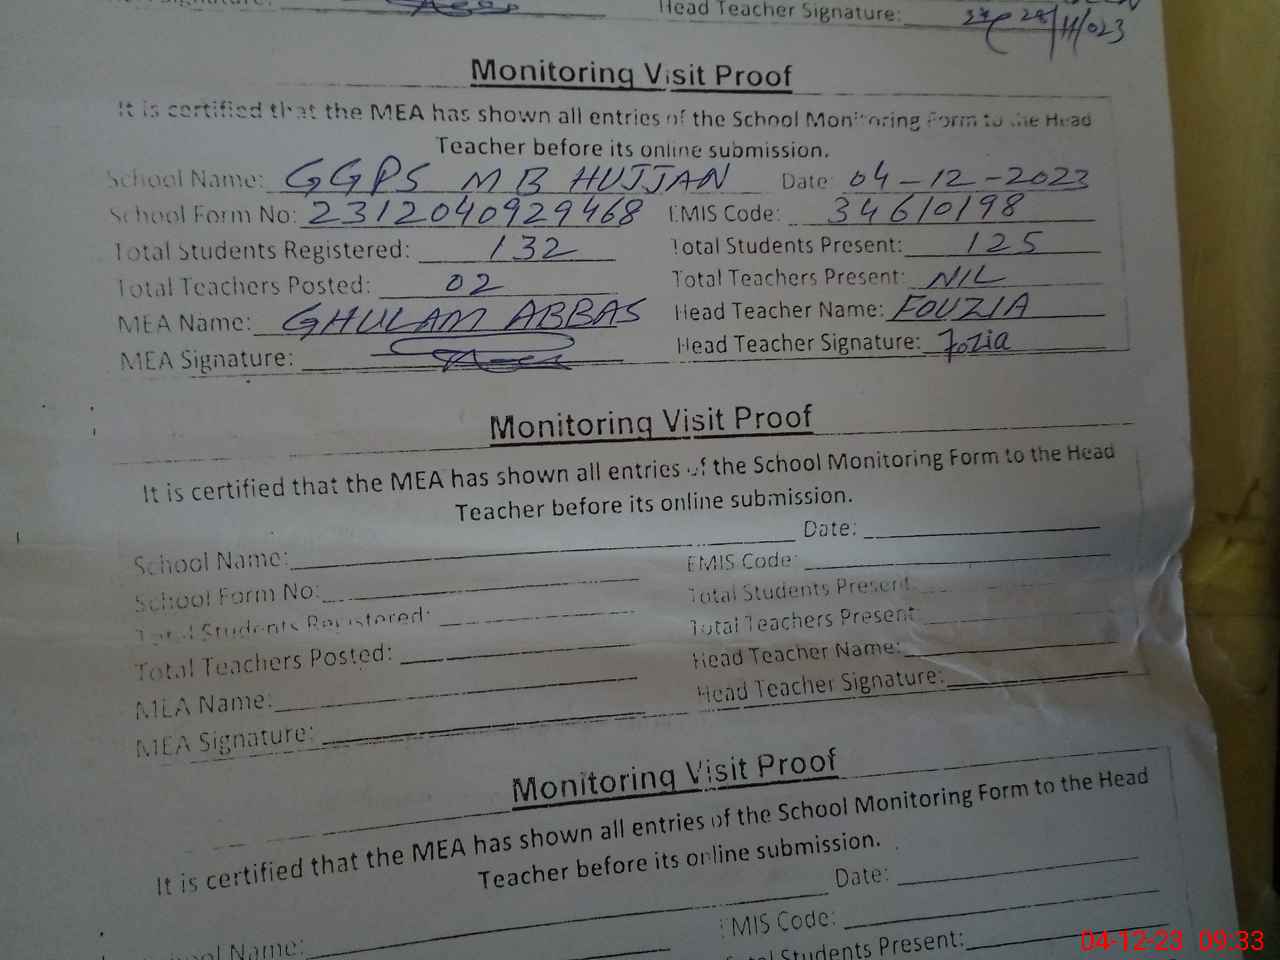 Head Teacher Signature: 28/11/023
Monitoring Visit Proof
It is certified that the MEA has shown all entries of the School Monitoring Form to the Head
Teacher before its online submission.
School Name: GGPS MB HUJJAN Date: 04-12-2023
School Form No: 2312040929468 EMIS Code: 34610198
Total Students Registered: 132 Total Students Present: 125
Total Teachers Posted: 02 Total Teachers Present: NIL
MEA Name: GHULAM ABBAS Head Teacher Name: FOUZIA
MEA Signature: Head Teacher Signature: Fozia
Monitoring Visit Proof
It is certified that the MEA has shown all entries of the School Monitoring Form to the Head
Teacher before its online submission.
School Name: Date:
School Form No: EMIS Code:
Total Students Registered: Total Students Present:
Total Teachers Posted: Total Teachers Present:
MEA Name: Head Teacher Name:
MEA Signature: Head Teacher Signature:
Monitoring Visit Proof
It is certified that the MEA has shown all entries of the School Monitoring Form to the Head
Teacher before its online submission.
School Name: Date:
EMIS Code:
Total Students Present:
04-12-23 09:33